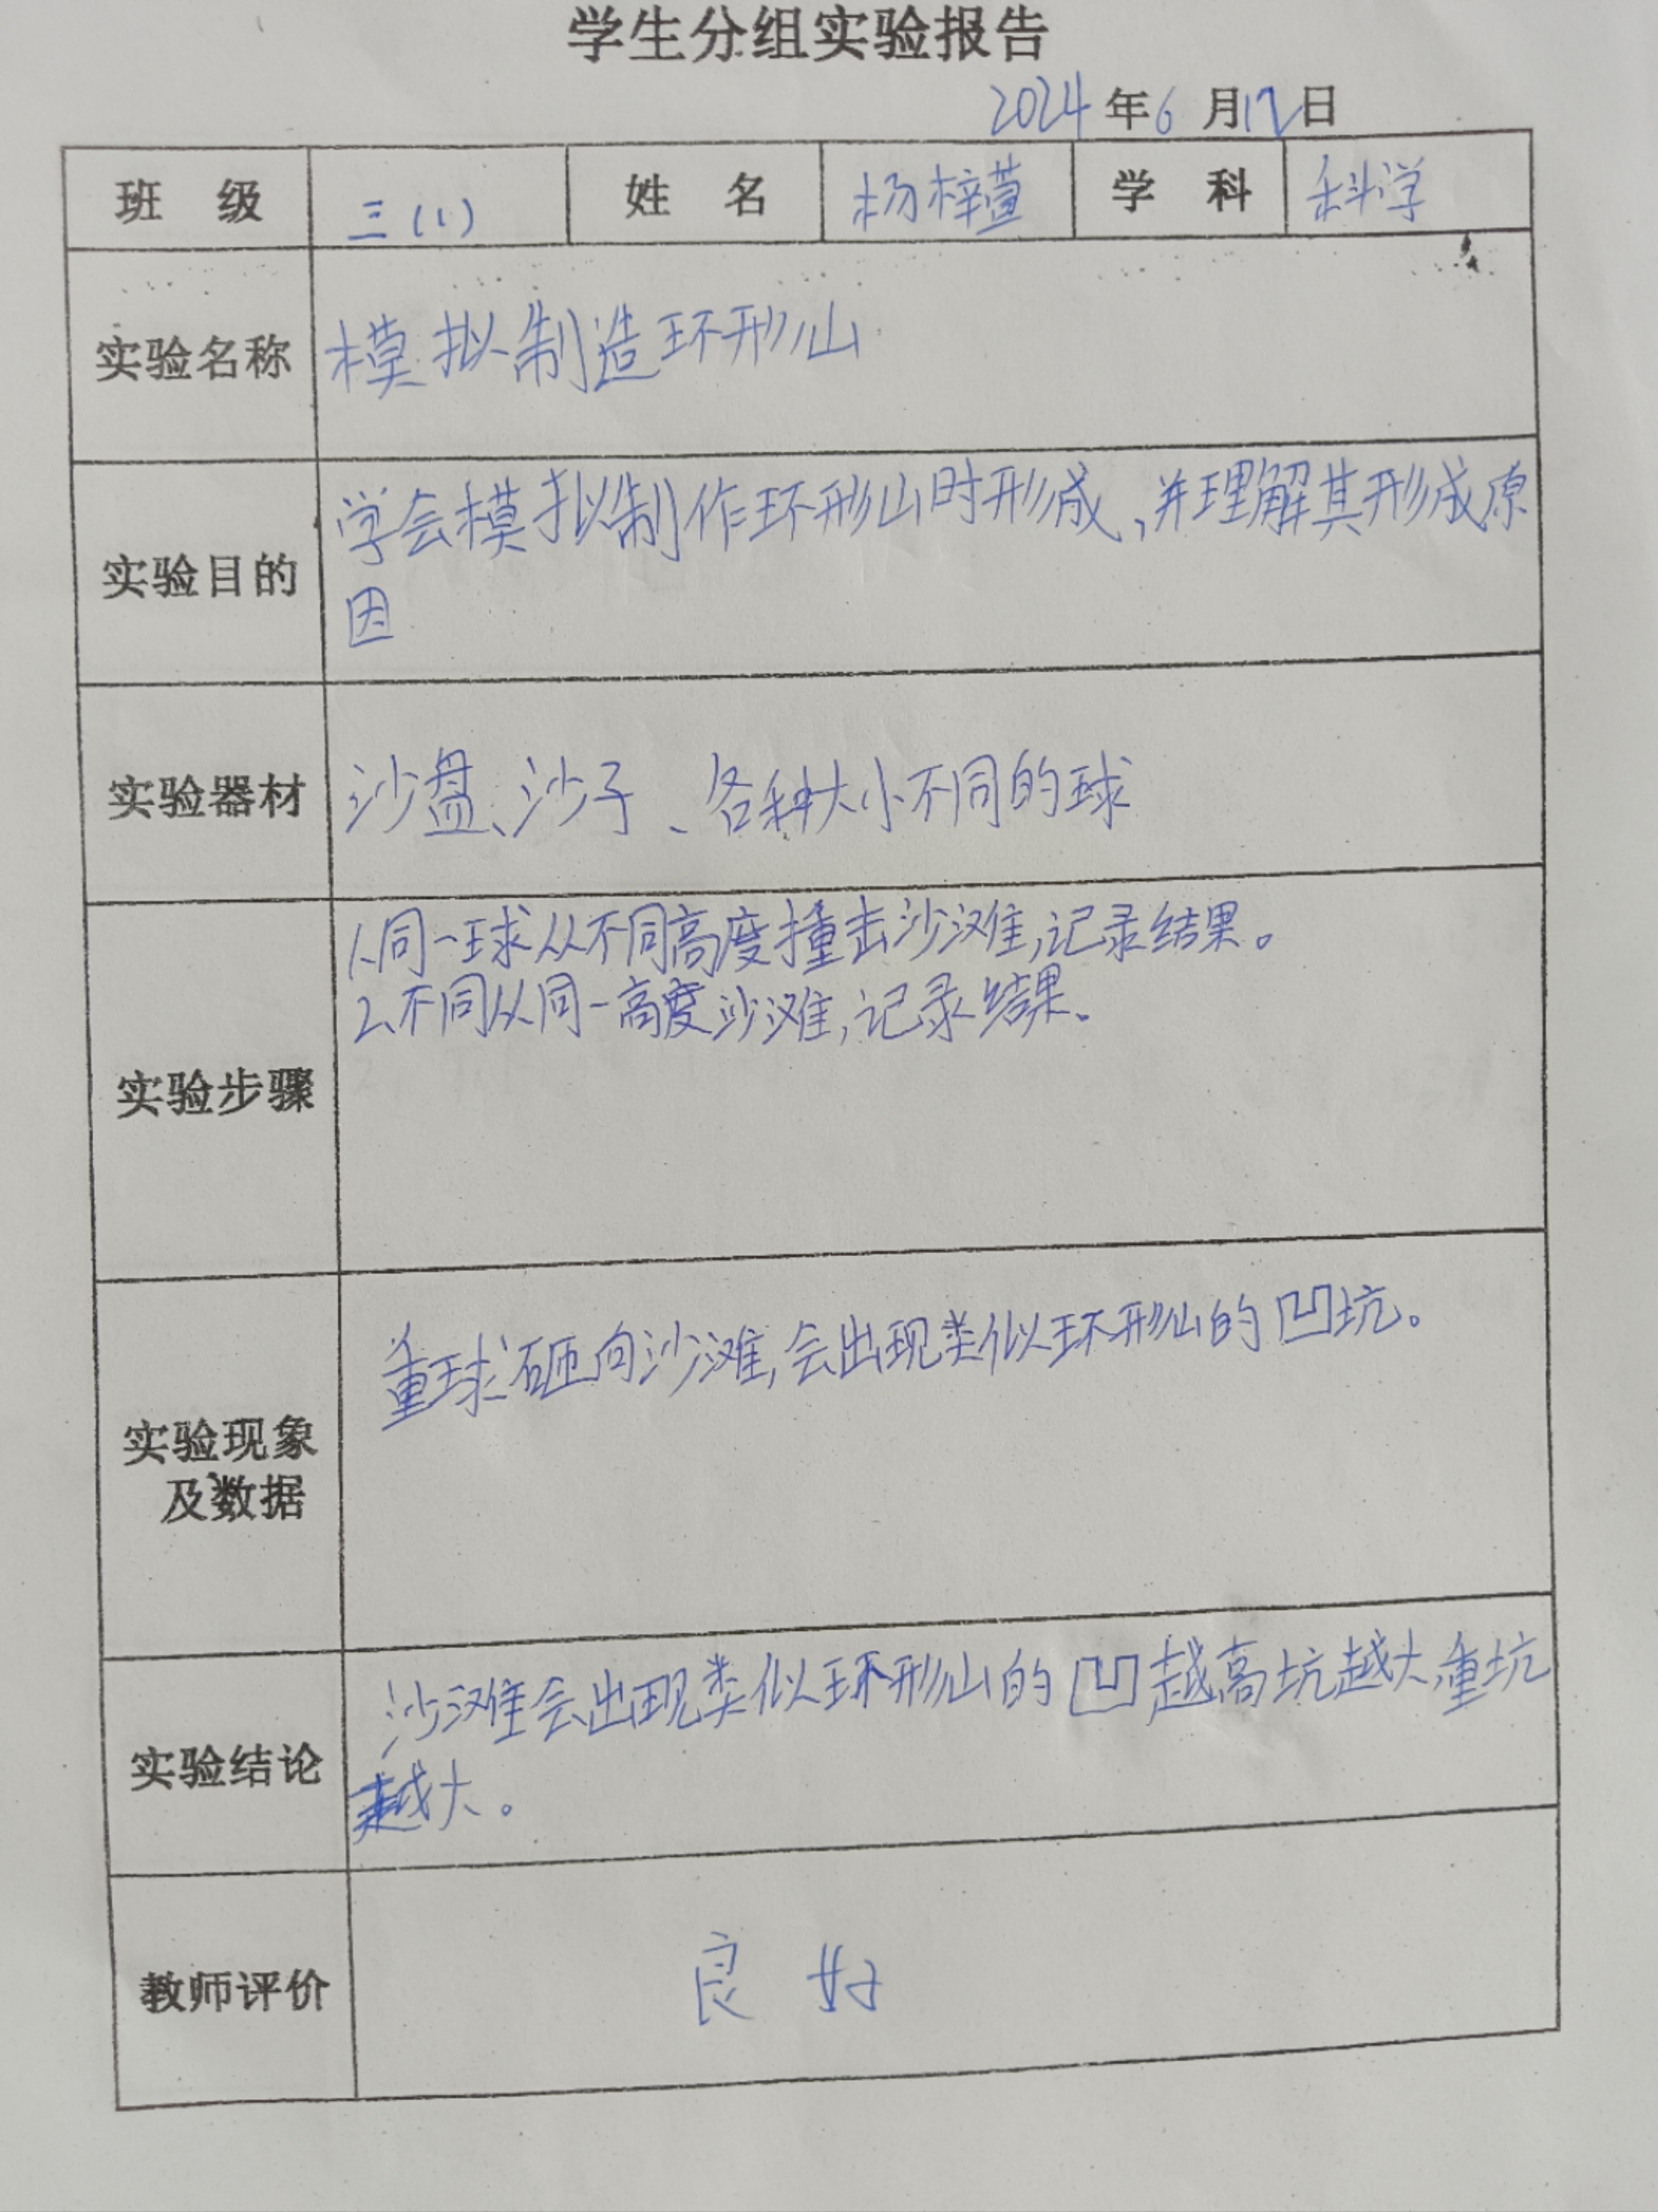 学生分组实验报告
2024年6月12日
班级 三(1) 姓名 杨梓萱 学科 科学
实验名称 模拟制造环形山
实验目的 学会模拟制作环形山时形成,并理解其形成原
因
实验器材 沙盘、沙子、各种大小不同的球
实验步骤
1、同一球从不同高度撞击沙滩,记录结果。
2、不同从同一高度沙滩,记录结果。
实验现象
及数据
重球砸向沙滩,会出现类似环形山的凹坑。
实验结论
沙滩会出现类似环形山的凹越高坑越大,重坑
越大。
教师评价 良好